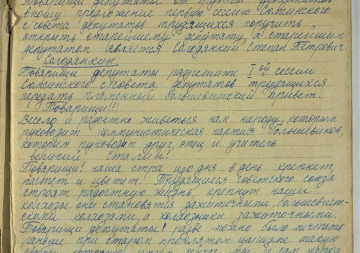 Товарищи депутаты от группы депутатов
вношу предложение первую сессию
Совета депутатов трудящихся поручить
открыть старейшему депутату, а старейшим
депутатом является Солодянкин Степан Петрович.
Солодянкин.
Товарищи депутаты разрешите I ой сессии
Совета депутатов трудящихся
передать пламенный большевистский привет.
Товарищи!!!
Весело и радостно живеться нам народу, которым
руководит коммунистическая партия большевиков,
которым руководит друг, отец и учитель
великий Сталин!
Товарищи! наша страна изо дня в день крепнет,
растет и цветет. Трудящиеся советского союза
строят радостную жизнь, крепнут наши
колхозы они становятся зажиточными большевист-
скими колхозами, а колхозники зажиточными.
Товарищи депутаты! разве можно было мечтать
раньше при старом проклятом царизме такую